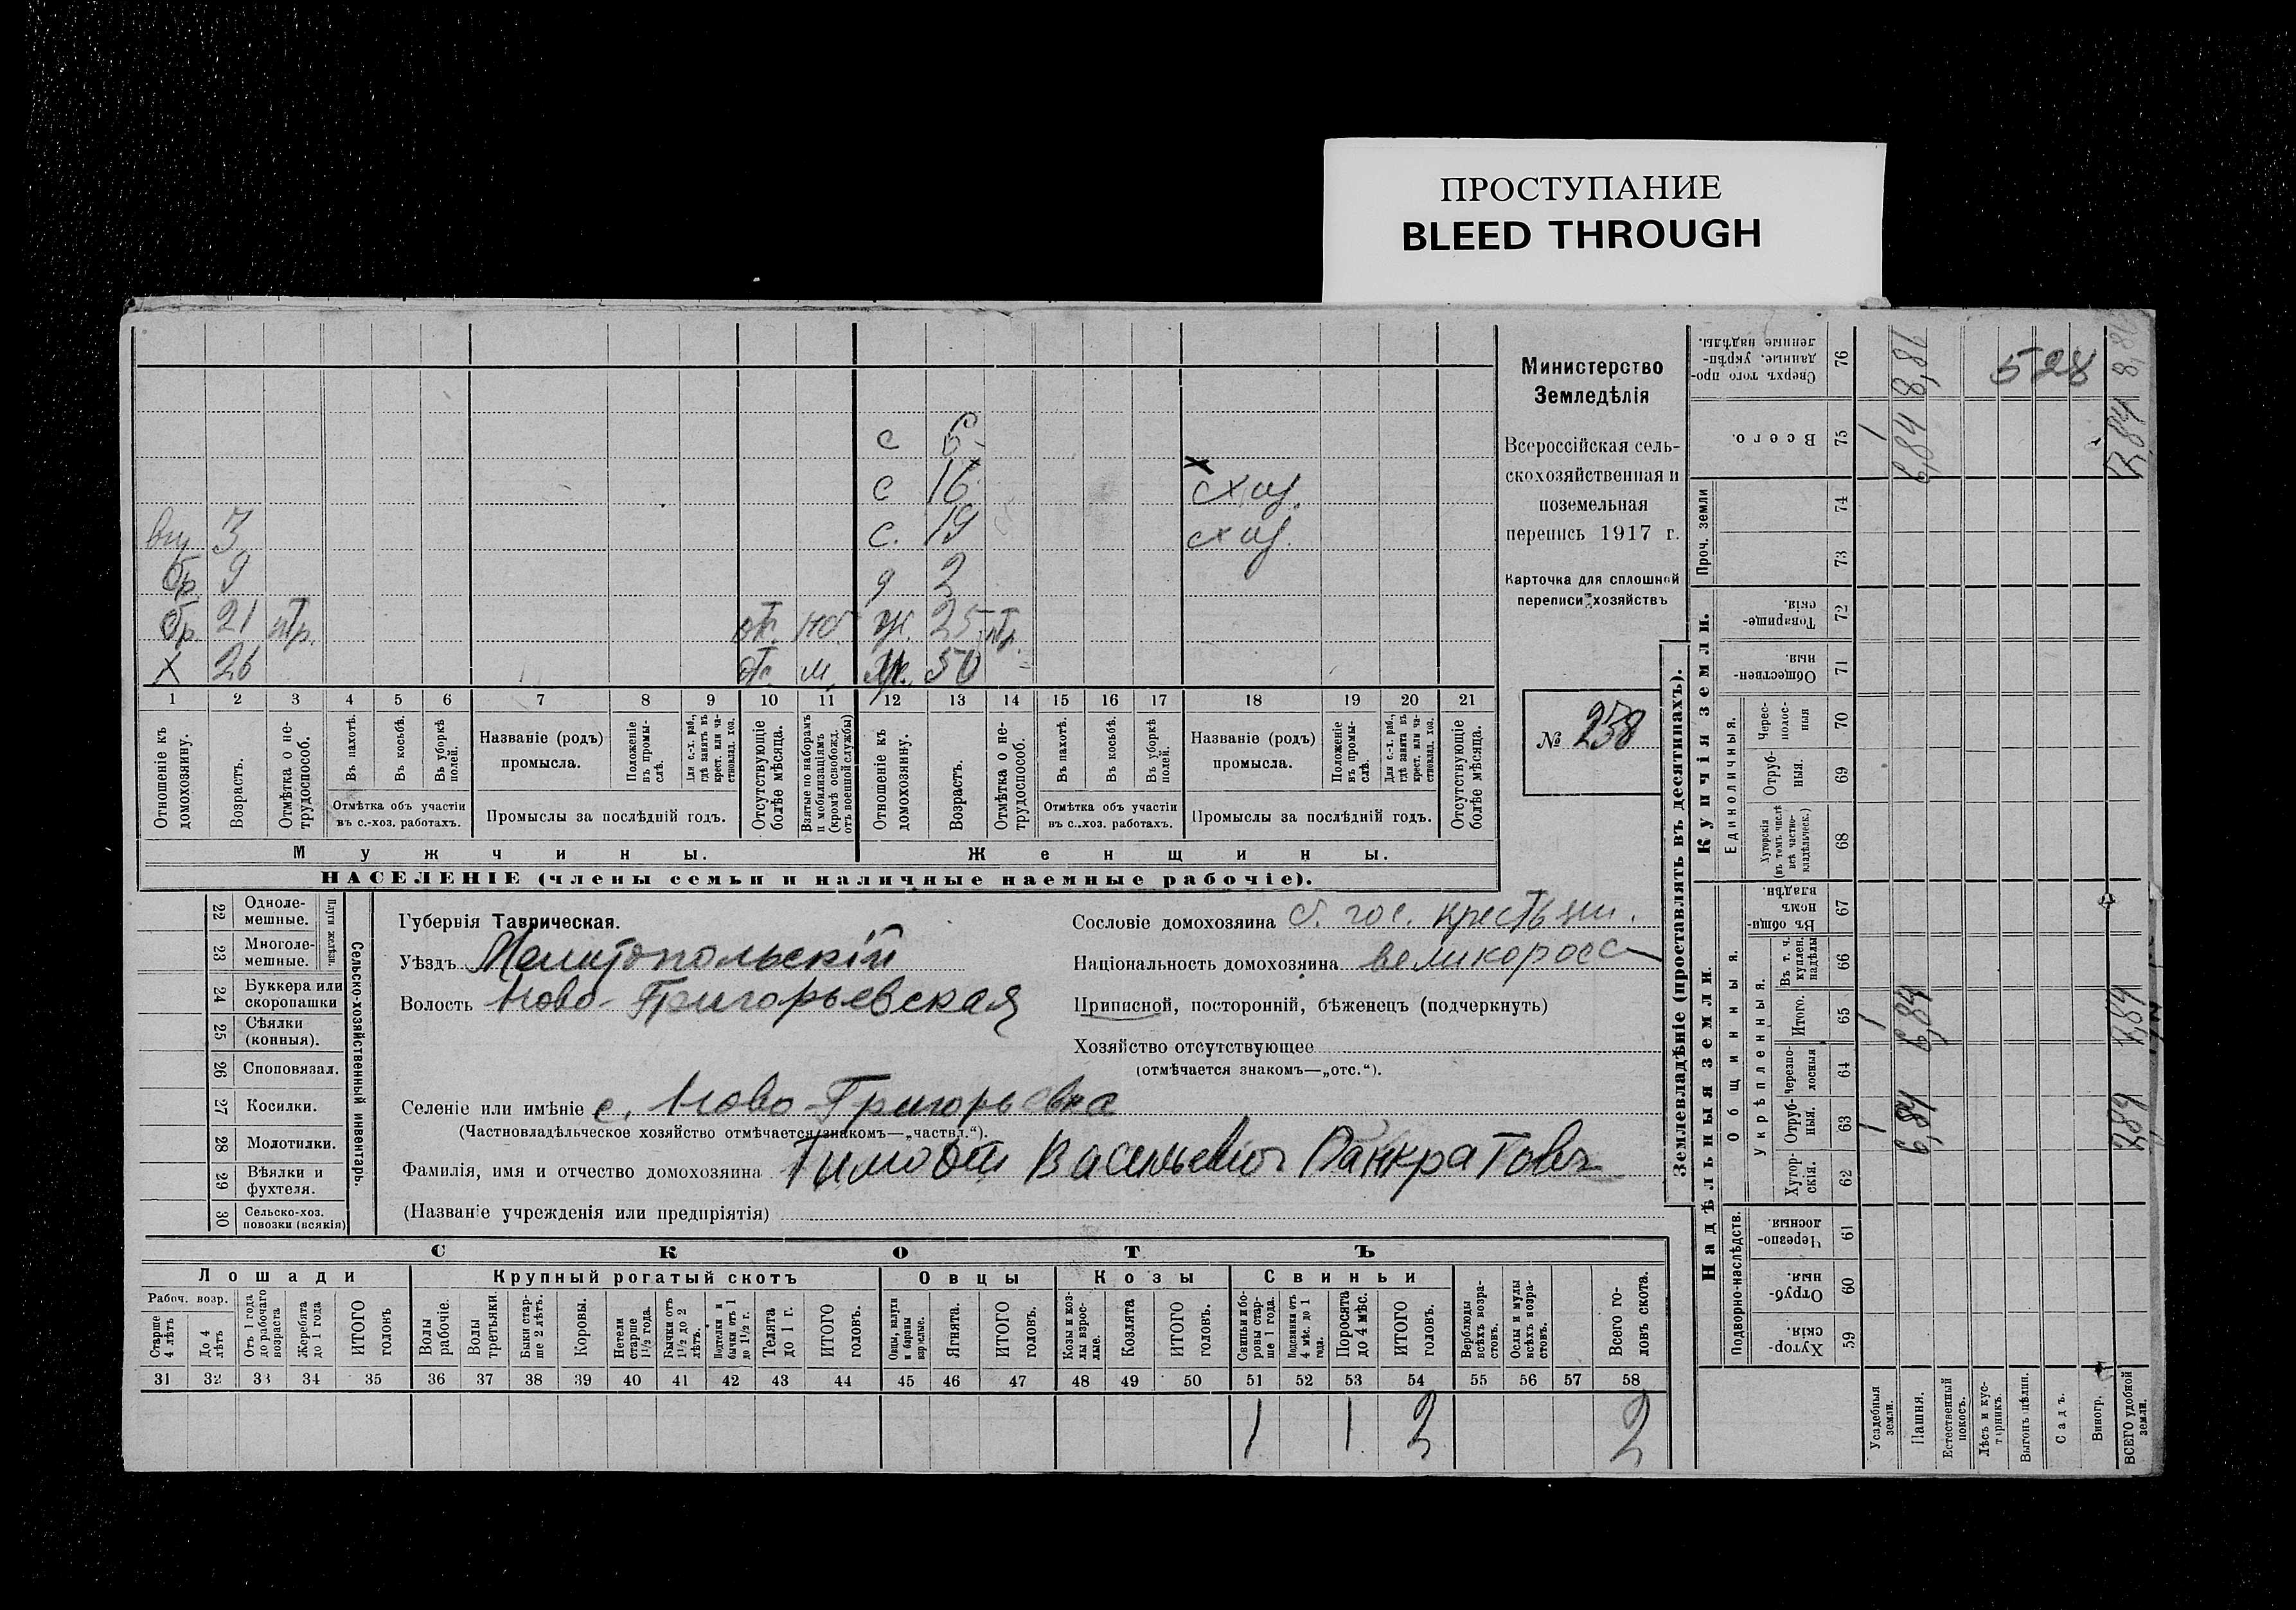 ПРОСТУПАНИЕ
BLEED THROUGH
Министерство
Земледѣлія
Всероссійская сель-
скохозяйственная и
поземельная
перепись 1917 г.
Карточка для сплошной
переписи хозяйствъ
№ 238
с 6
с 16 схоз.
вн 3 с. 19 схоз.
бр. 9 д 2
бр. 21 отс. ж. 25
х 26 отс. м. 50
1 2 3 4 5 6 7 8 9 10 11 12 13 14 15 16 17 18 19 20 21
Отношеніе къ домохозяину.
Возрастъ.
Отмѣтка о не-трудоспособ.
Въ пахотѣ.
Въ косьбѣ.
Въ уборкѣ полей.
Отмѣтка объ участіи
въ с.-хоз. работахъ.
Названіе (родъ)
промысла.
Положеніе въ промы-слѣ.
Для с.-х. раб., гдѣ занятъ въ крест. или ча-стновлад. хоз.
Промыслы за послѣдній годъ.
Отсутствующіе болѣе мѣсяца.
Взятые по наборамъ и мобилизаціямъ (кромѣ освобожд. отъ военной службы)
Отношеніе къ домохозяину.
Возрастъ.
Отмѣтка о не-трудоспособ.
Въ пахотѣ.
Въ косьбѣ.
Въ уборкѣ полей.
Отмѣтка объ участіи
въ с..хоз. работахъ.
Названіе (родъ)
промысла.
Положеніе въ промы-слѣ.
Для с.-х. раб., гдѣ занята въ крест. или ча-стновлад. хоз.
Промыслы за послѣдній годъ.
Отсутствующіе болѣе мѣсяца.
Мужчины. Женщины.
НАСЕЛЕНІЕ (члены семьи и наличные наемные рабочіе).
22 Одноле-мешные.
23 Многоле-мешные.
Плуги желѣзн.
24 Буккера или скоропашки
25 Сѣялки (конныя).
26 Споповязал.
27 Косилки.
28 Молотилки.
29 Вѣялки и фухтеля.
30 Сельско-хоз. повозки (всякія)
Сельско-хозяйственный инвентарь.
Губернія Таврическая.
Уѣздъ Мелитопольскій
Волость Ново-Григорьевская
Сословіе домохозяина б. гос. крестьян.
Національность домохозяина великоросс
Приписной, посторонній, бѣженец (подчеркнуть)
Хозяйство отсутствующее
(отмѣчается знакомъ—„отс.“).
Селеніе или имѣніе с. Ново-Григорьевка
(Частновладѣльческое хозяйство отмѣчается знакомъ—„частвл.“).
Фамилія, имя и отчество домохозяина Тимофѣй Васильевич Панкратовъ
(Названіе учрежденія или предпріятія)
СКОТЪ
Лошади Крупный рогатый скотъ Овцы Козы Свиньи
Рабоч. возр.
Старше 4 лѣтъ
До 4 лѣтъ
Отъ 1 года до рабочаго возраста
Жеребята до 1 года
ИТОГО головъ
Волы рабочіе.
Волы третьяки.
Быки стар-ше 2 лѣтъ.
Коровы.
Нетели старше 1½ года.
Бычки отъ 1½ до 2 лѣтъ.
Подтелки и бычки отъ 1 до 1½ г.
Телята до 1 г.
ИТОГО головъ.
Овцы, валухи и бараны взрослые.
Ягнята.
ИТОГО головъ.
Козы и коз-лы взрос-лые.
Козлята
ИТОГО головъ.
Свиньи и бо-ровы стар-ше 1 года.
Подсвинки отъ 4 мѣс. до 1 года.
Поросята до 4 мѣс.
ИТОГО головъ.
Верблюды всѣхъ возра-стовъ.
Ослы и мулы всѣхъ возра-стовъ.
Всего го-ловъ скота.
31 32 33 34 35 36 37 38 39 40 41 42 43 44 45 46 47 48 49 50 51 52 53 54 55 56 57 58
1 1 2 2
Землевладѣніе (проставлять въ десятинахъ).
Надѣльныя земли. Купчія земли.
Подворно-наслѣдств.
Общинныя.
Укрѣпленныя.
Единоличныя.
Проч. земли
Хутор-скія. 59
Отруб-ныя. 60
Черезпо-лосныя. 61
Хутор-скія. 62
Отруб-ныя. 63 1 6,84
Черезпо-лосныя 64
Итого. 65 1 6,84
Въ т. ч. куплен. надѣлы 66
Въ общин-номъ владѣн. 67
Хуторскія (въ томъ числѣ всѣ частно-владѣльческ.) 68
Отруб-ныя. 69
Черес-полос-ныя 70
Обществен-ныя 71
Товарище-скія. 72
73
74
Всего. 75 1 6,84
Сверхъ того про-данные, укрѣп-ленные надѣлы. 76 8,86
528
Усадебныя земли.
Пашня.
Естественный покосъ.
Лѣсъ и кус-тарникъ.
Выгонъ цѣлин.
Садъ.
Виногр.
ВСЕГО удобной земли.
7,84 8,86